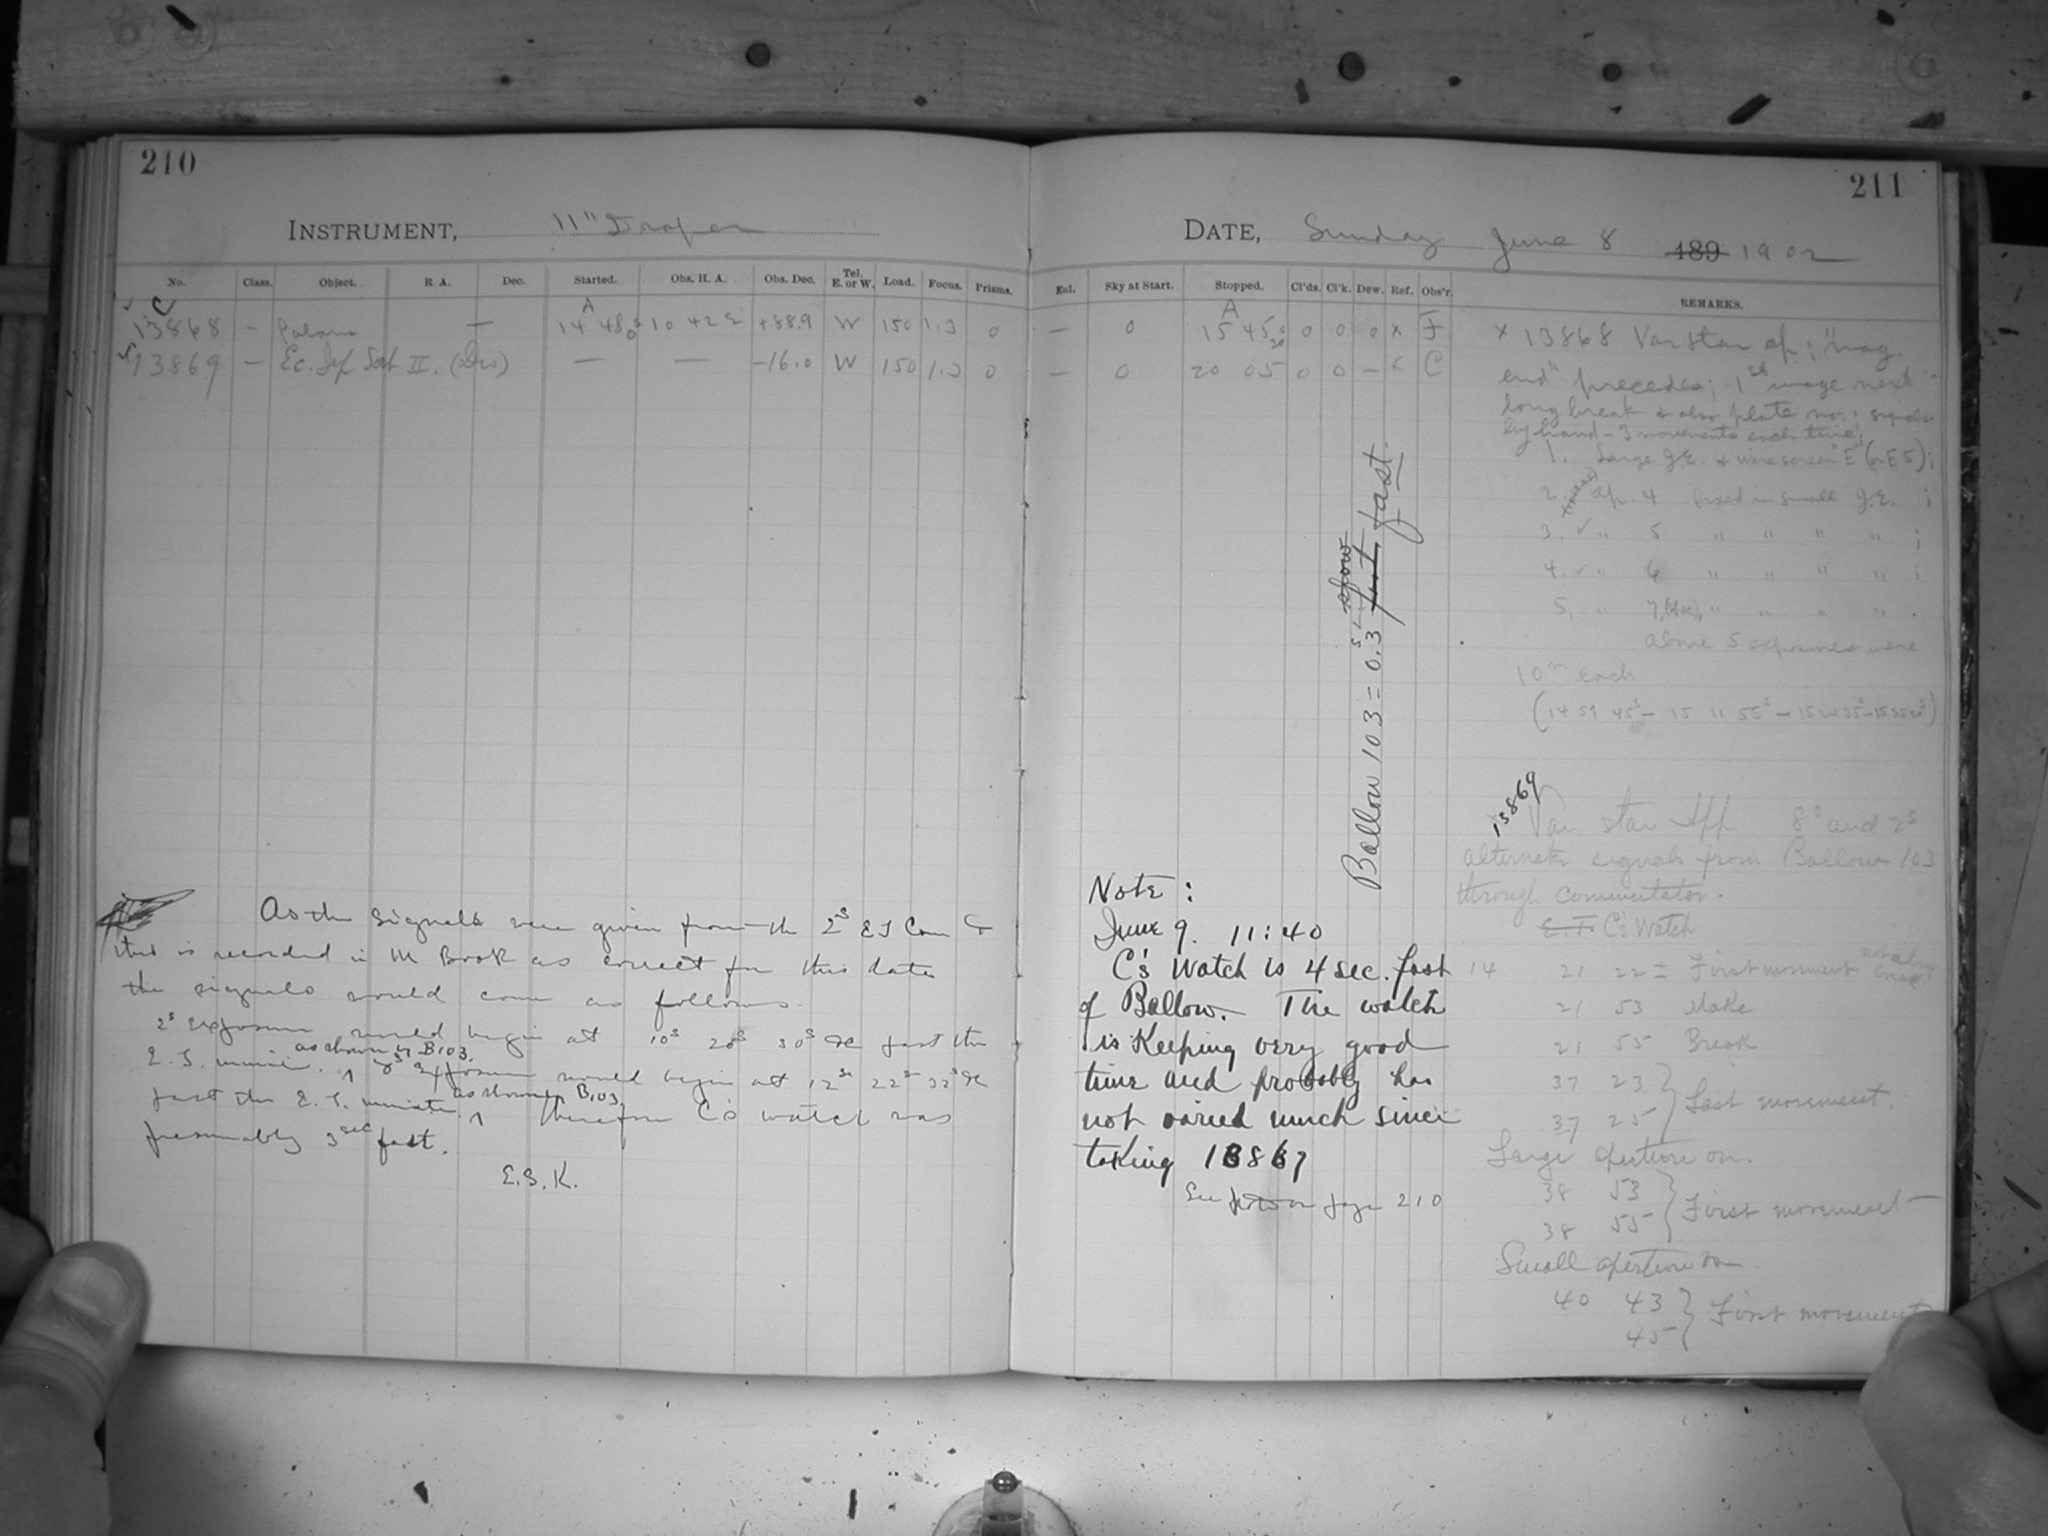 210
INSTRUMENT, 11" Draper
No. Class. Object. R. A. Dec. Started. Obs. H. A. Obs. Dec. Tel. E. or W. Load. Focus. Prisms.
C
A
13868 – Polaris — 14 48 0s 10 42 E +88.9 W 150 1.3 0
13869 – Ec. Jup Sat II. (Dis) — — -16.0 W 150 1.3 0
As the signals were given from the 2s E S Com &
this is recorded in M Book as correct for this date
the signals would come as follows.
2s exposure would begin at 10s 20s 30s &c past the
E. S. minute as shown by B103. 8s exposure would begin at 12s 22s 32s &c
past the E. S. minute as shown B103. Therefore C's watch was
presumably 3sec fast.
E. S. K.
211
DATE, Sunday June 8 189 1902
Enl. Sky at Start. Stopped. Cl'ds. Cl'k. Dew. Ref. Obs'r. REMARKS.
A
— 0 15 45 20s 0 0 0 x F
— 0 20 05 0 0 – x C
x 13868 Var star ap.; "mag.
end" precedes; 1st image next
long break & also plate no.; signals
by hand – 3 movements each time;
1. Large J.E. & wire screen "E" (on E5);
2. ap. 4 fixed in small J.E. ;
3. ✓ " 5 " " " " ;
4. ✓ " 6 " " " " ;
5. " 7, " " " " .
above 5 exposures were
10m each
(14 59 45s – 15 11 55s –
Ballow 103 = 0.3s slow fast fast.
13869
Var star App 8s and 2s
alternate signals from Ballow 103
through commutator.
E. T. C's Watch
14 21 22 ± First movement
21 53 Make
21 55 Break
37 23 } Last movement.
37 25
Large aperture on.
38 53 } First movement
38 55
Small aperture on
40 43 } First movement
45
Note :
June 9. 11:40
C's Watch is 4 sec. fast
of Ballow. The watch
is Keeping very good
time and probably has
not varied much since
taking 13867
See on page 210